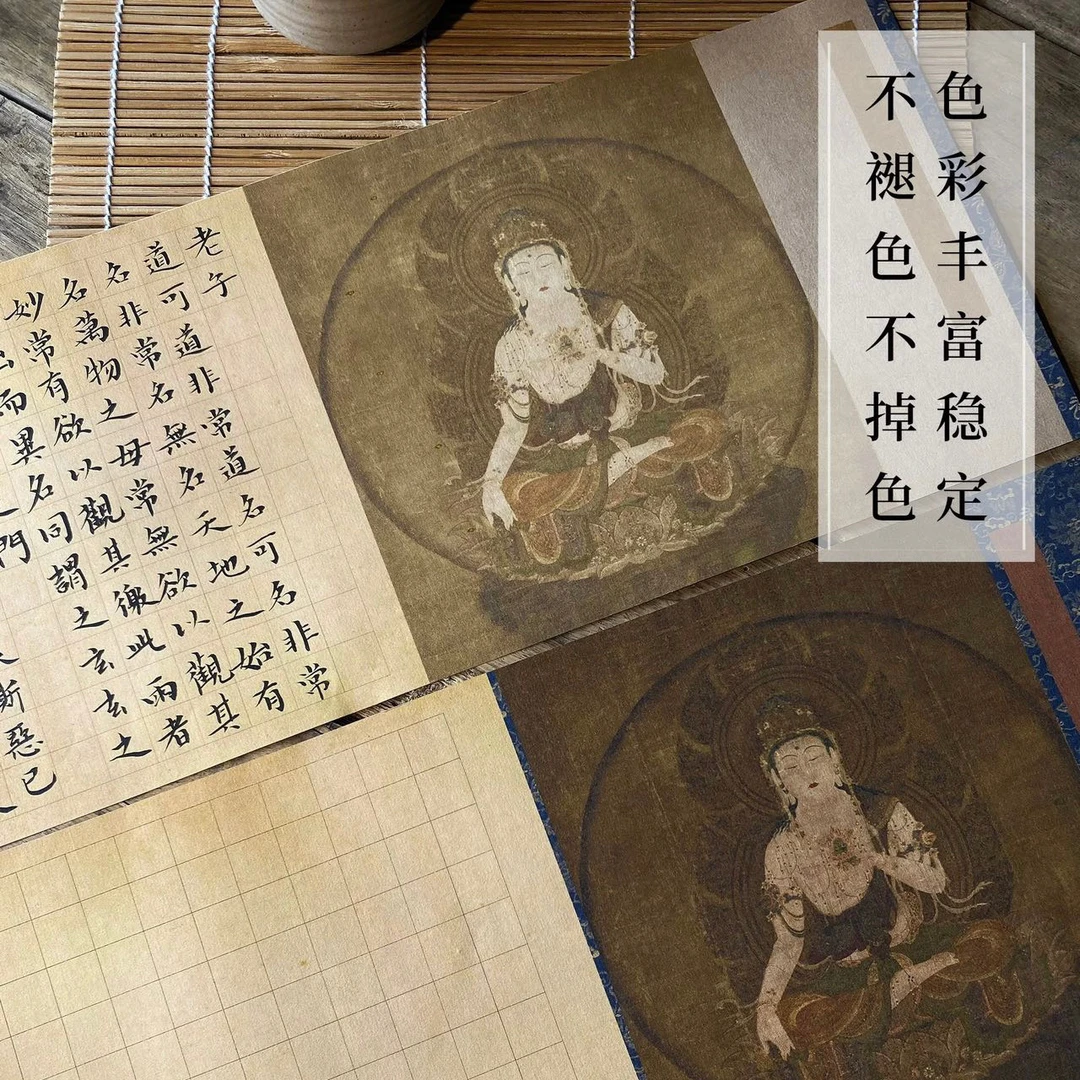 色彩丰富稳定
不褪色不掉色
老子
道可道非常道名可名非常
名非常名無名天地之始有
名萬物之母常無欲以觀其
妙常有欲以觀其徼此兩者
而異名同謂之玄玄之
門
斯惡已